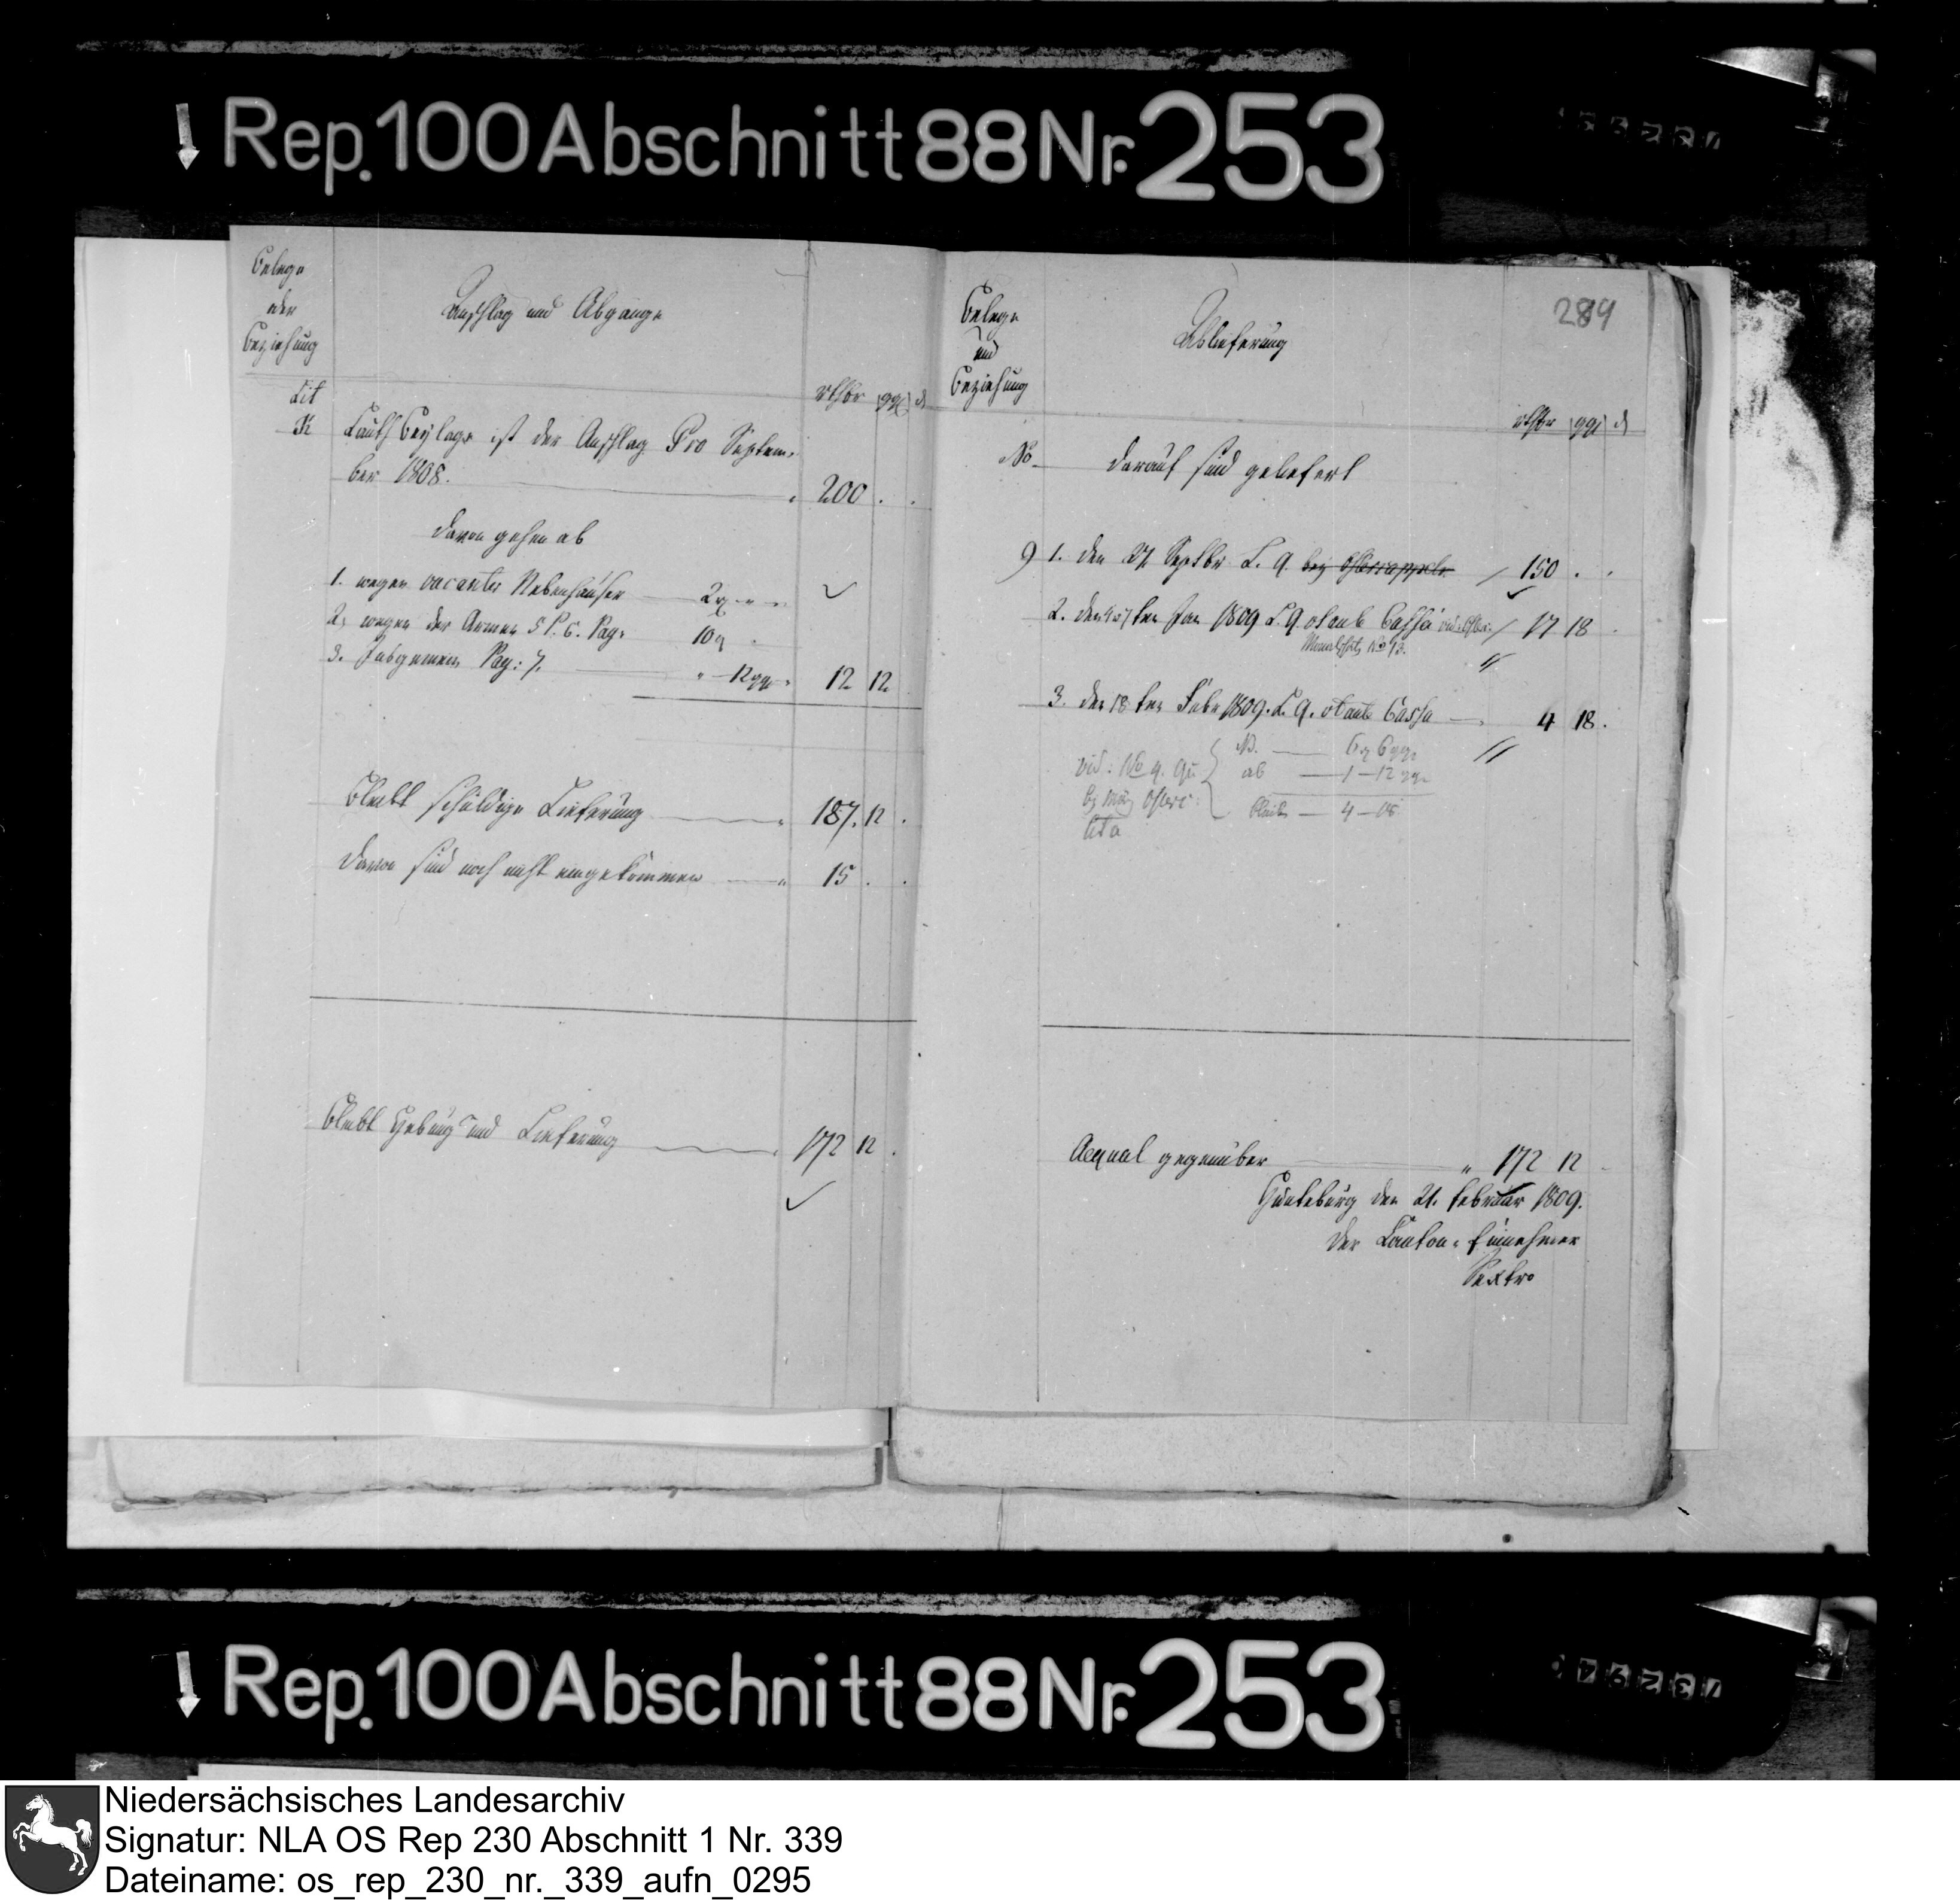 Rep. 100 Abschnitt 88 Nr. 253
Belege
oder
Beziehung
Anschlag und Abgänge
rthlr ggl d
Lit
K
Lauth Beylage ist der Anschlag Pro Septem-
ber 1808.
200
davon gehen ab
1. wegen vacanter Nebenhäuser
2. wegen der Armen
3. Insgemein Pag: 7. 12 12
Bleibt schuldige Lieferung 187. 12
Davon sind noch nicht eingekommen 15
Bleibt Hebung und Lieferung 172 12
284
Belege
und
Beziehung
Ablieferung
rthlr ggl d
No
darauf sind geliefert
9
1. den 27 Septbr L. Q. 150
2. Jan 1809 L. Q. Cassa 17 18
3. den 18ten Febr 1809. L. Q. Cassa 4 18.
vid: No
ab 1 — 12
bleibt — 4 — 18
Aequal gegenüber 172 12
Hünteburg den 21. Februar 1809.
Der Canton-Einnehmer
Sextro
Rep. 100 Abschnitt 88 Nr. 253
Niedersächsisches Landesarchiv
Signatur: NLA OS Rep 230 Abschnitt 1 Nr. 339
Dateiname: os_rep_230_nr._339_aufn_0295